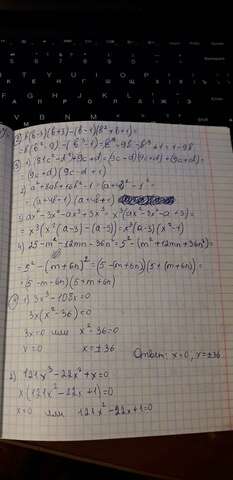 2) b(b-3)(b+3)-(b-1)(b²+b+1)=
=b(b²-9)-(b³-1)=b³-9b-b³+1=1-9b
③ 1) 81c²-d²+9c+d=(9c-d)(9c+d)+(9c+d)=
(9c+d)(9c-d+1)
2) a²+8ab+16b²-1=(a+4b)²-1²=
=(a+4b-1)(a+4b+1)
3) ax⁵-3x⁵-ax³+3x³=x³(ax²-3x²-a+3)=
=x³(x²(a-3)-(a-3))=x³(a-3)(x²-1)
4) 25-m²-12mn-36n²=5²-(m²+12mn+36n²)=
=5²-(m+6n)²=(5-(m+6n))(5+(m+6n))=
=(5-m-6n)(5+m+6n)
④ 1) 3x³-108x=0
3x(x²-36)=0
3x=0 или x²-36=0
x=0 x=±36
Ответ: x=0, x=±36.
2) 121x³-22x²+x=0
x(121x²-22x+1)=0
x=0 или 121x²-22x+1=0